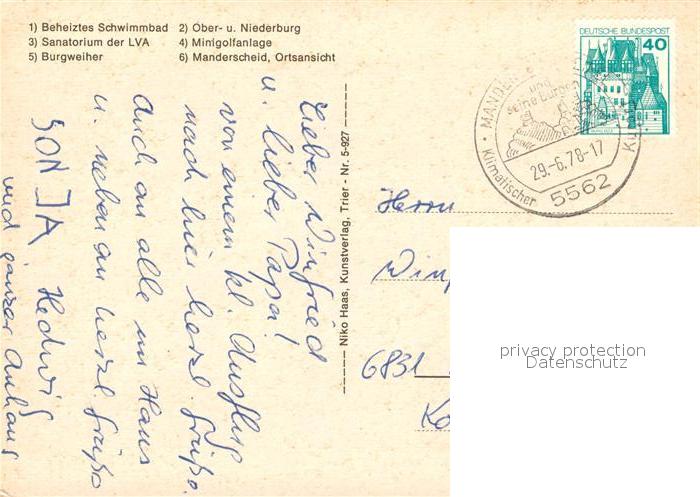 1) Beheiztes Schwimmbad 2) Ober- u. Niederburg
3) Sanatorium der LVA 4) Minigolfanlage
5) Burgweiher 6) Manderscheid, Ortsansicht
DEUTSCHE BUNDESPOST
40
und
seine Burgen
29.-6.78-17
Klimatischer
5562
Niko Haas, Kunstverlag, Trier - Nr. 5-927
Lieber Winfried
u. lieber Papa!
von einem kl. Ausflug
nach hier herzl. Grüße.
Auch an alle im Haus
u. neben an herzl. Grüße
SONJA, Hedwig
und ganzer Anhang
Herrn
6831
privacy protection
Datenschutz